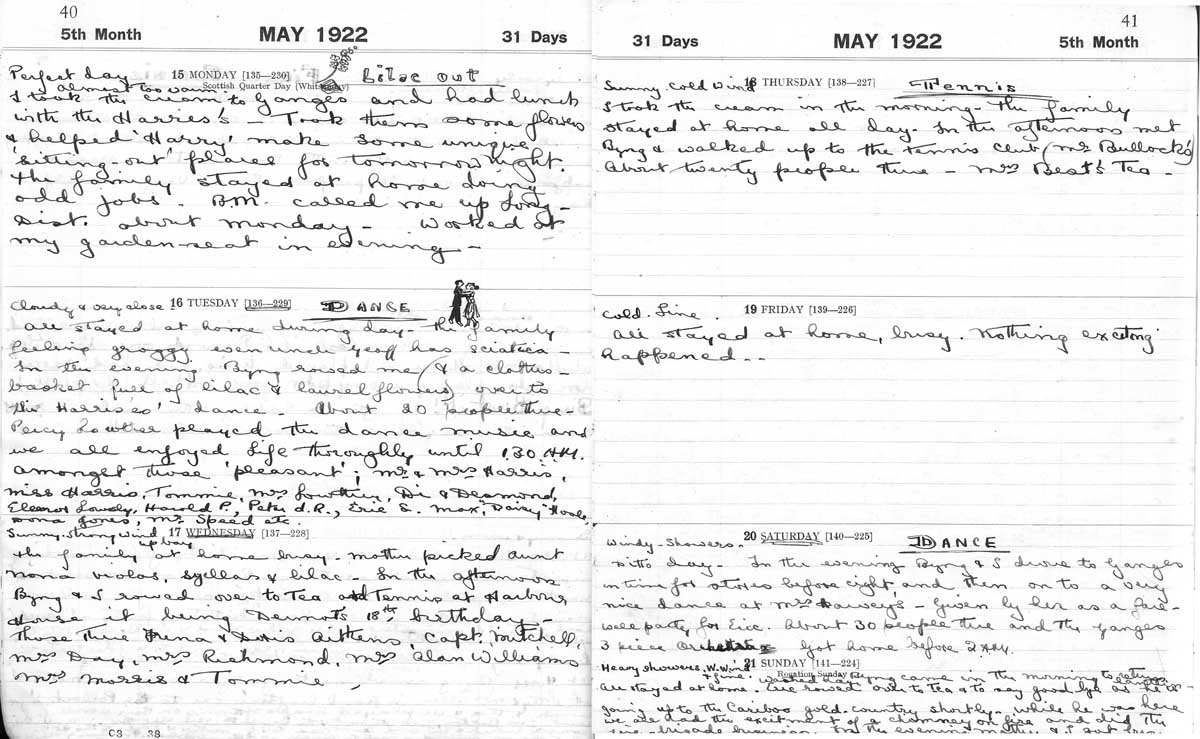 40
5th Month MAY 1922 31 Days
Perfect day 15 MONDAY [135—230] Lilac out
almost too warm Scottish Quarter Day (Whitsunday)
I took the cream to Ganges and had lunch
with the Harris's — Took them some flowers
& helped 'Harry' make some unique
'sitting-out' places for tomorrow night.
The family stayed at home doing
odd jobs. B.M. called me up Long-
Dist. about Monday — Worked at
my garden-seat in evening —
Cloudy & very close. 16 TUESDAY [136—229] DANCE
All stayed at home during day — The family
feeling groggy even Uncle Geoff has sciatica —
In the evening Byng rowed me (& a clothes-
basket full of lilac & laurel flowers) over to
the Harris's' dance — About 20 people there —
Percy Lowther played the dance music and
we all enjoyed life thoroughly until 1.30 A.M.
amongst those 'pleasant'; Mr & Mrs Harris,
Miss Harris, Tommie, Mrs Lowther, Di & Desmond,
Eleanor Harold P., Peter d.R., Eric S. Max, "Daisy"
Jones, Mr Speed etc.
Sunny. strong wind 17 WEDNESDAY [137—228]
up bay
The family at home busy — Mother picked Aunt
Nona violas, & lilac — In the afternoon
Byng & I rowed over to Tea and Tennis at Harbour
House it being Dermot's 18th birthday —
Those there & Doris Aitkens, Capt. Mitchell,
Mrs Day, Mrs Richmond, Mrs Alan Williams
Mrs Morris & Tommie,
C3 38
41
31 Days MAY 1922 5th Month
Sunny. Cold Wind 18 THURSDAY [138—227] Tennis
I took the cream in the morning — The family
stayed at home all day — In the afternoon met
Byng & walked up to the Tennis Club (Mr Bullock's)
About twenty people there — Mrs Best's Tea —
Cold. Fine. 19 FRIDAY [139—226]
All stayed at home, busy. Nothing exciting
happened --
Windy — Showers — 20 SATURDAY [140—225] DANCE
Ditto day — In the evening Byng & I drove to Ganges
in time for stores before eight, and then on to a very
nice dance at Mrs — Given by her as a fare-
well party for Eric. About 30 people there and the Ganges
3 piece Orchestra Got home before 2 A.M.
Heavy showers. W. Wind 21 SUNDAY [141—224]
& fine. Rogation Sunday
Byng came in the morning to
All stayed at home. Eric rowed over to tea & to say good bye as he is
going up to the Cariboo gold-country shortly — While he was here
we all had the excitment of a chimney on fire and did the
fire-brigade business. In the evening Mother & I